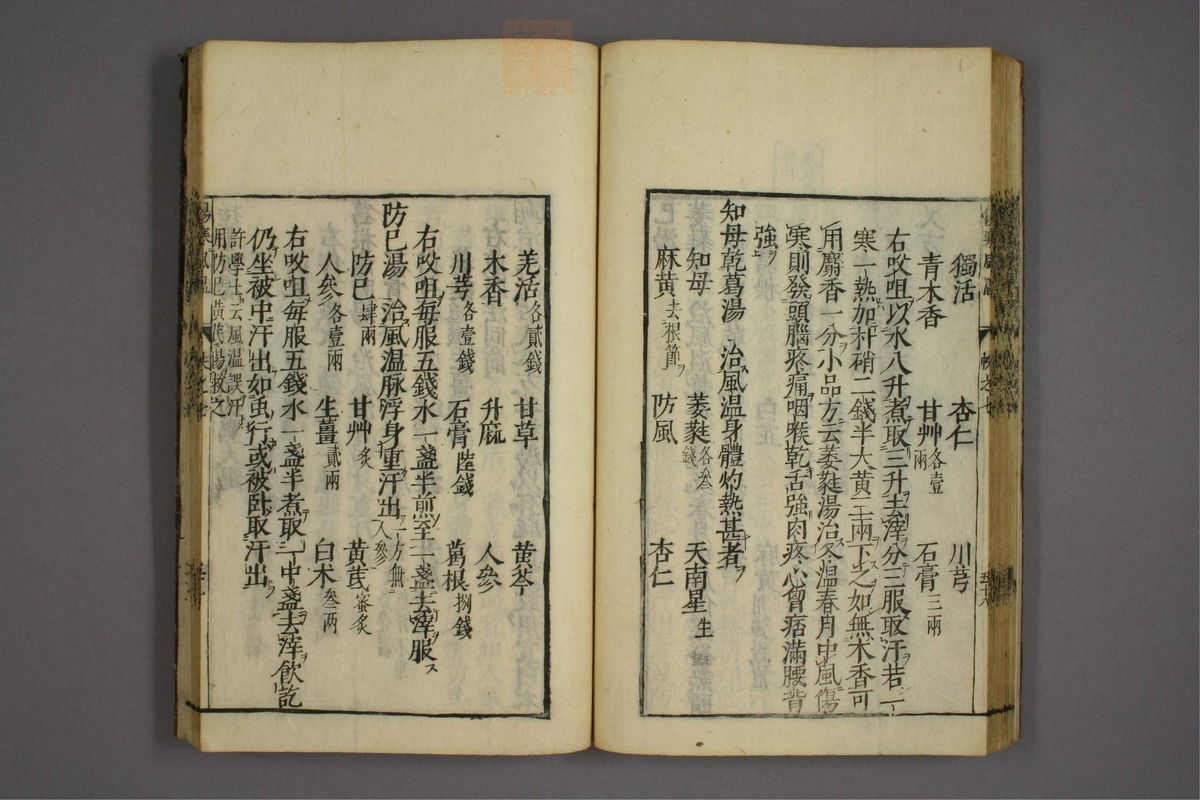 獨活 杏仁 川芎
青木香 甘艸各壹兩 石膏三兩
右㕮咀以水八升煮取三升去滓分三服取汗若一
寒一熱加朴硝二錢半大黃二兩下之如無木香可
用麝香一分小品方云萎蕤湯治冬温春月中風傷
寒則發頭腦疼痛咽喉乾舌強肉疼心胷痞滿腰背
強
知母乾葛湯 治風温身體灼熱甚者
知母 萎蕤各叁錢 天南星生
麻黃去根節 防風 杏仁
羌活各貳錢 甘草 黃芩
木香 升麻 人參
川芎各壹錢 石膏陸錢 葛根捌錢
右㕮咀每服五錢水一盞半煎至一盞去滓服
防巳湯 治風温脉浮身重汗出一方無人參
防巳肆兩 甘艸炙 黃芪蜜炙
人參各壹兩 生薑貳兩 白术叁兩
右㕮咀每服五錢水一盞半煮取一中盞去滓飲訖
仍坐被中汗出如虫行或被臥取汗出
許學士云風温誤汗
用防巳黃芪湯救之